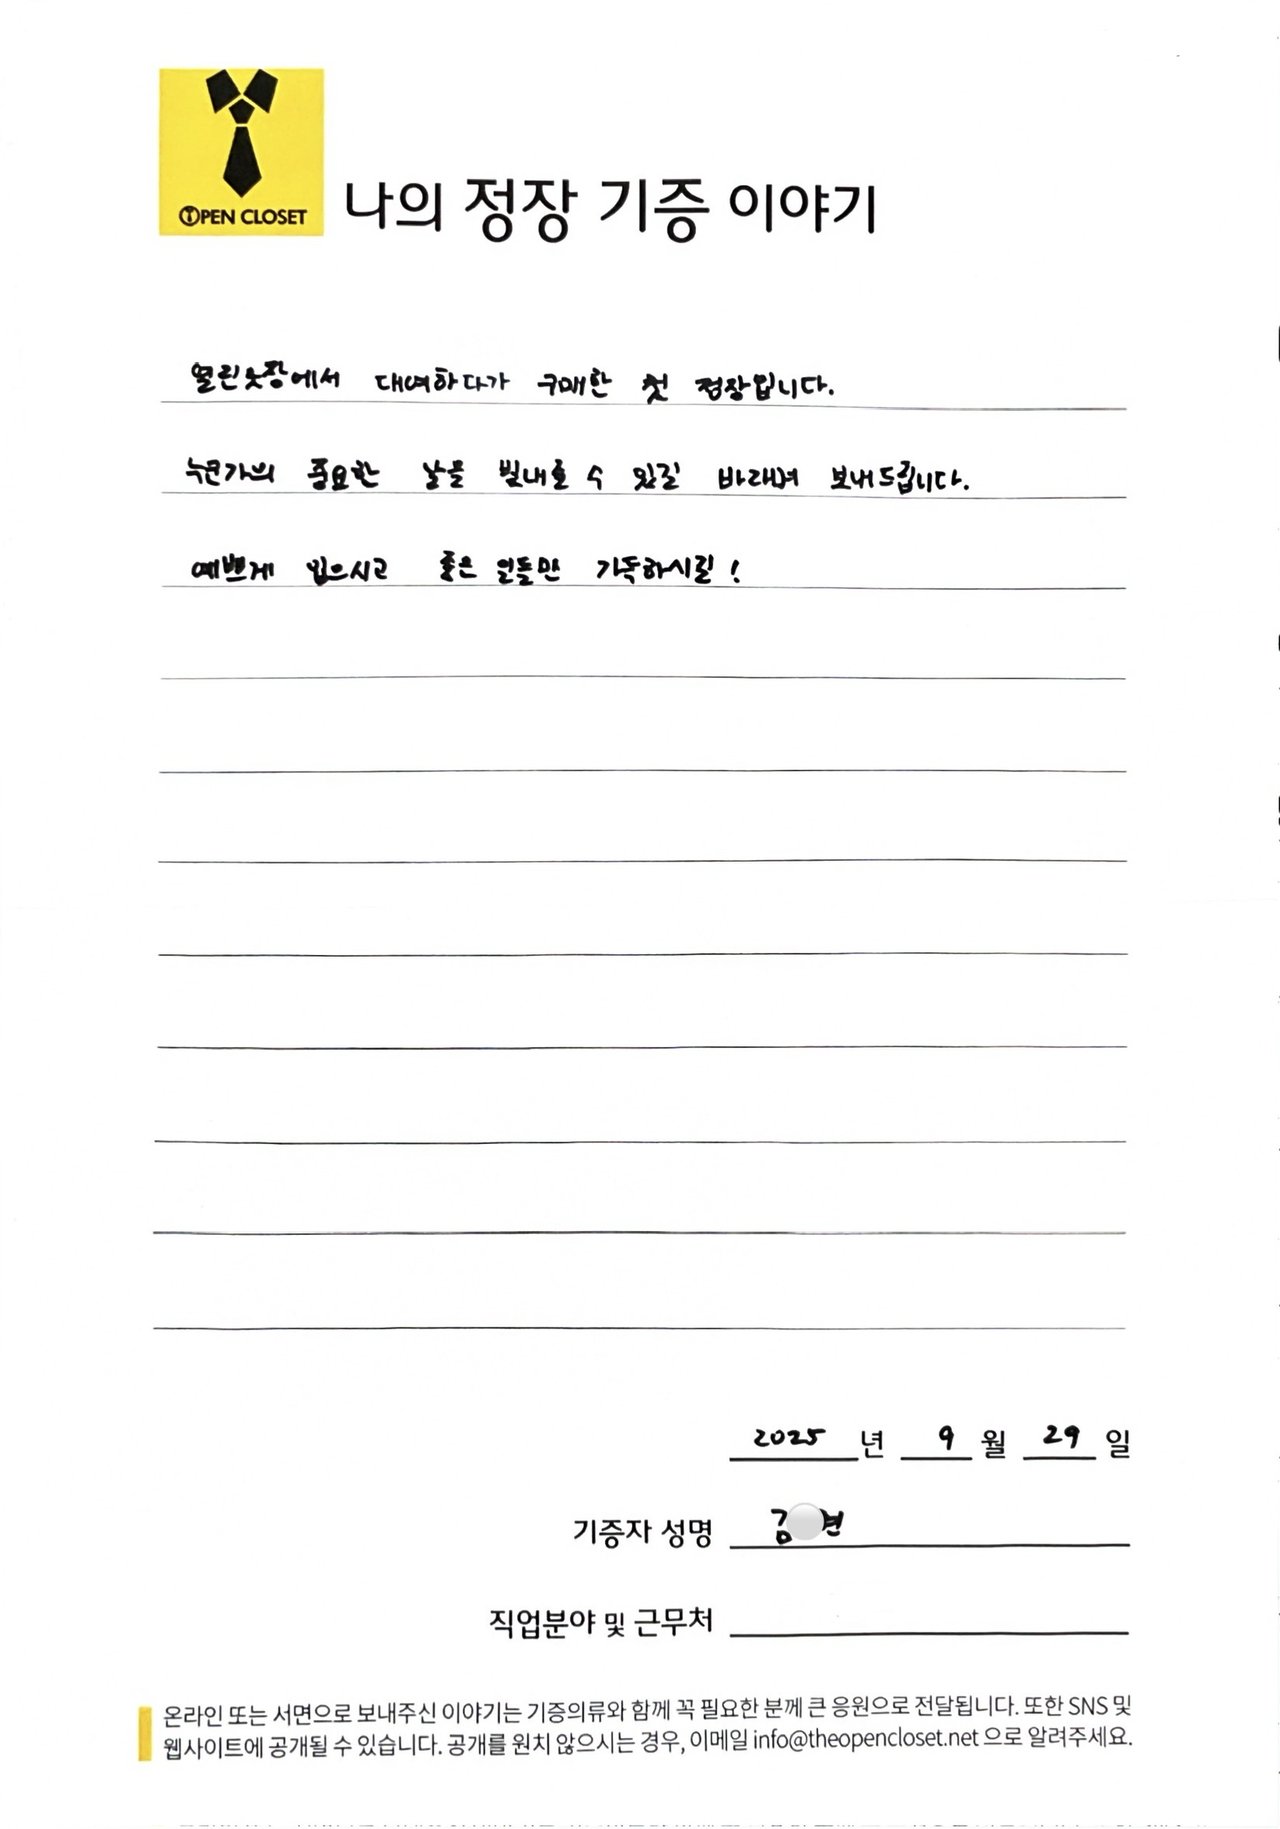 OPEN CLOSET
나의 정장 기증 이야기
열린옷장에서 대여하다가 구매한 첫 정장입니다.
누군가의 중요한 날을 빛내줄 수 있길 바래며 보내드립니다.
예쁘게 입으시고 좋은 일들만 가득하시길!
2025 년 9 월 29 일
기증자 성명 김 현
직업분야 및 근무처
온라인 또는 서면으로 보내주신 이야기는 기증의류와 함께 꼭 필요한 분께 큰 응원으로 전달됩니다. 또한 SNS 및
웹사이트에 공개될 수 있습니다. 공개를 원치 않으시는 경우, 이메일 info@theopencloset.net 으로 알려주세요.